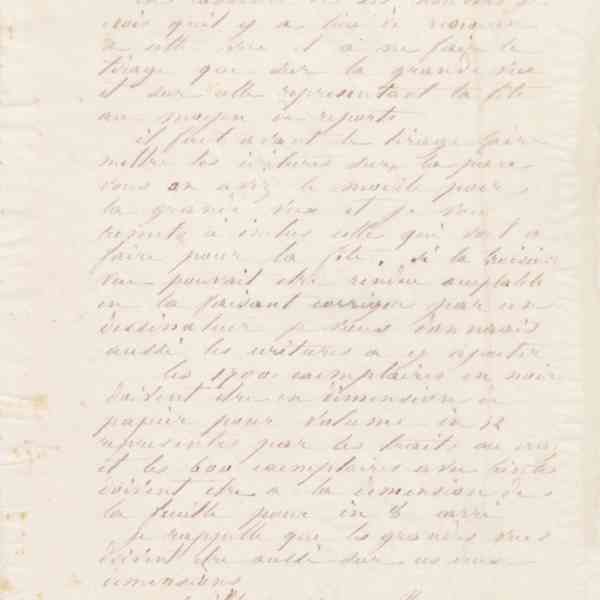 crois qu'il y a lieu de renoncer
à cette vue et à ne faire le
tirage que sur la grande vue
et sur celle représentant la fête
au moyen de reports
il faut avant le tirage faire
mettre les écritures sur la pierre
vous en avez le modèle pour
la grande vue et je vous
remets à inclus celle qui sert à
faire pour la fête. Si la troisième
vue pouvait être rendue acceptable
en la faisant corriger par un
dessinateur je vous donnerais
aussi les écritures à y ajouter
les 1700 exemplaires en noir
doivent être en dimension de
papier pour volume in 12
représentés par les traits au
et les 600 exemplaires avec teintes
doivent être à la dimension de
la feuille pour in 8 carré
Je rappelle que les grandes vues
doivent être aussi sur
dimensions